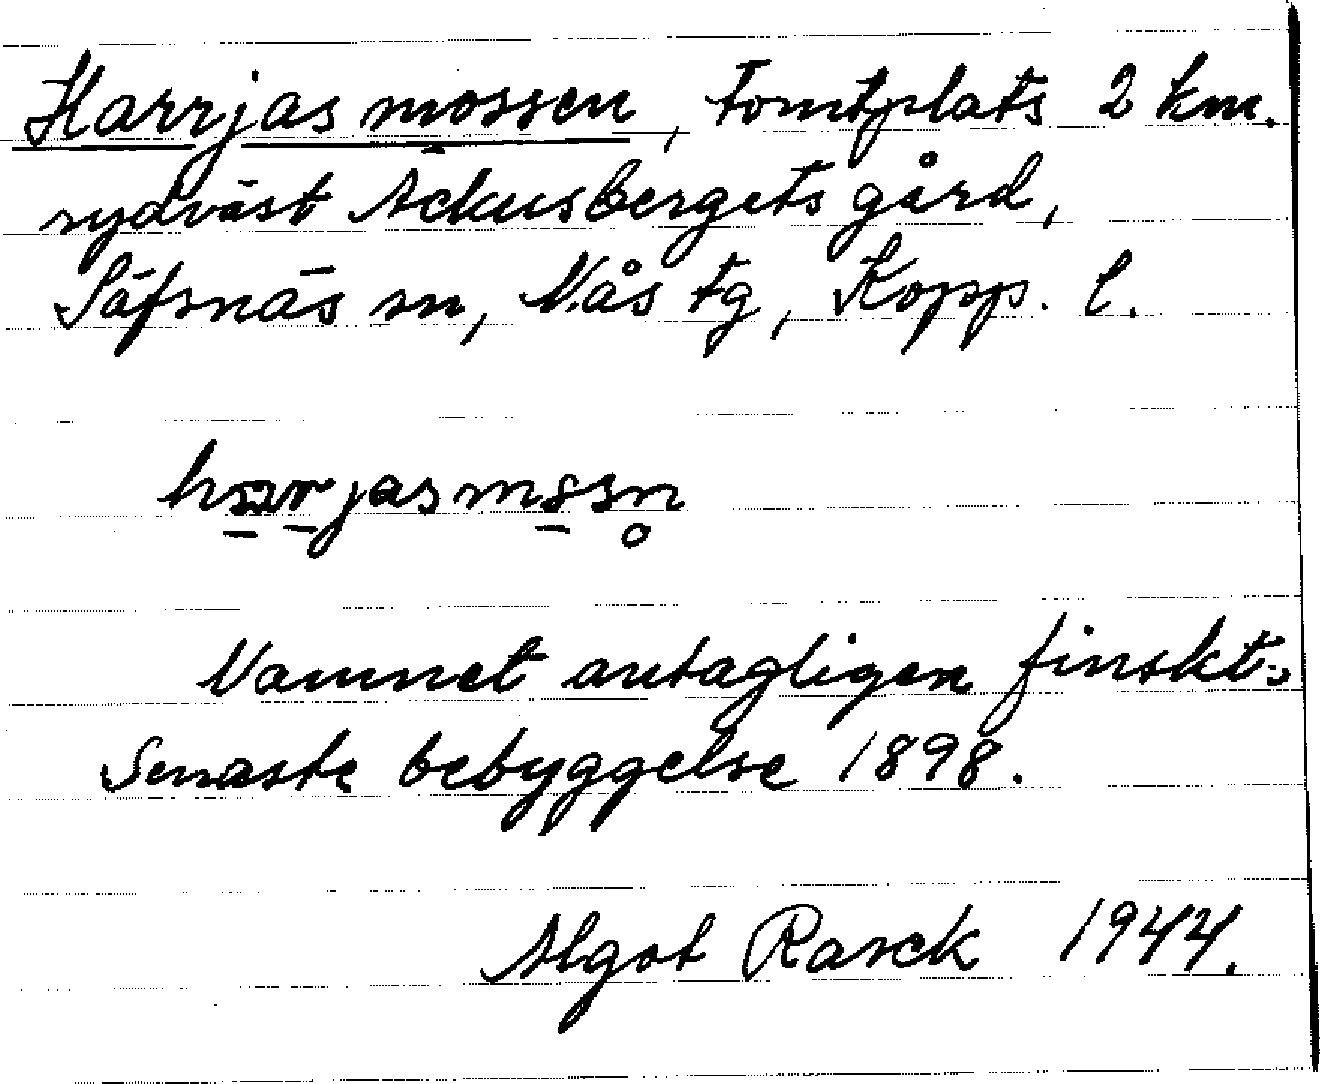 Harrjasmossen, tomtplats 2 km.
sydväst Ackusbergets gård,
Säfsnäs sn, Nås tg, Kopp. l.
Namnet antagligen finskt.
Senaste bebyggelse 1898.
Algot Rasck 1944.